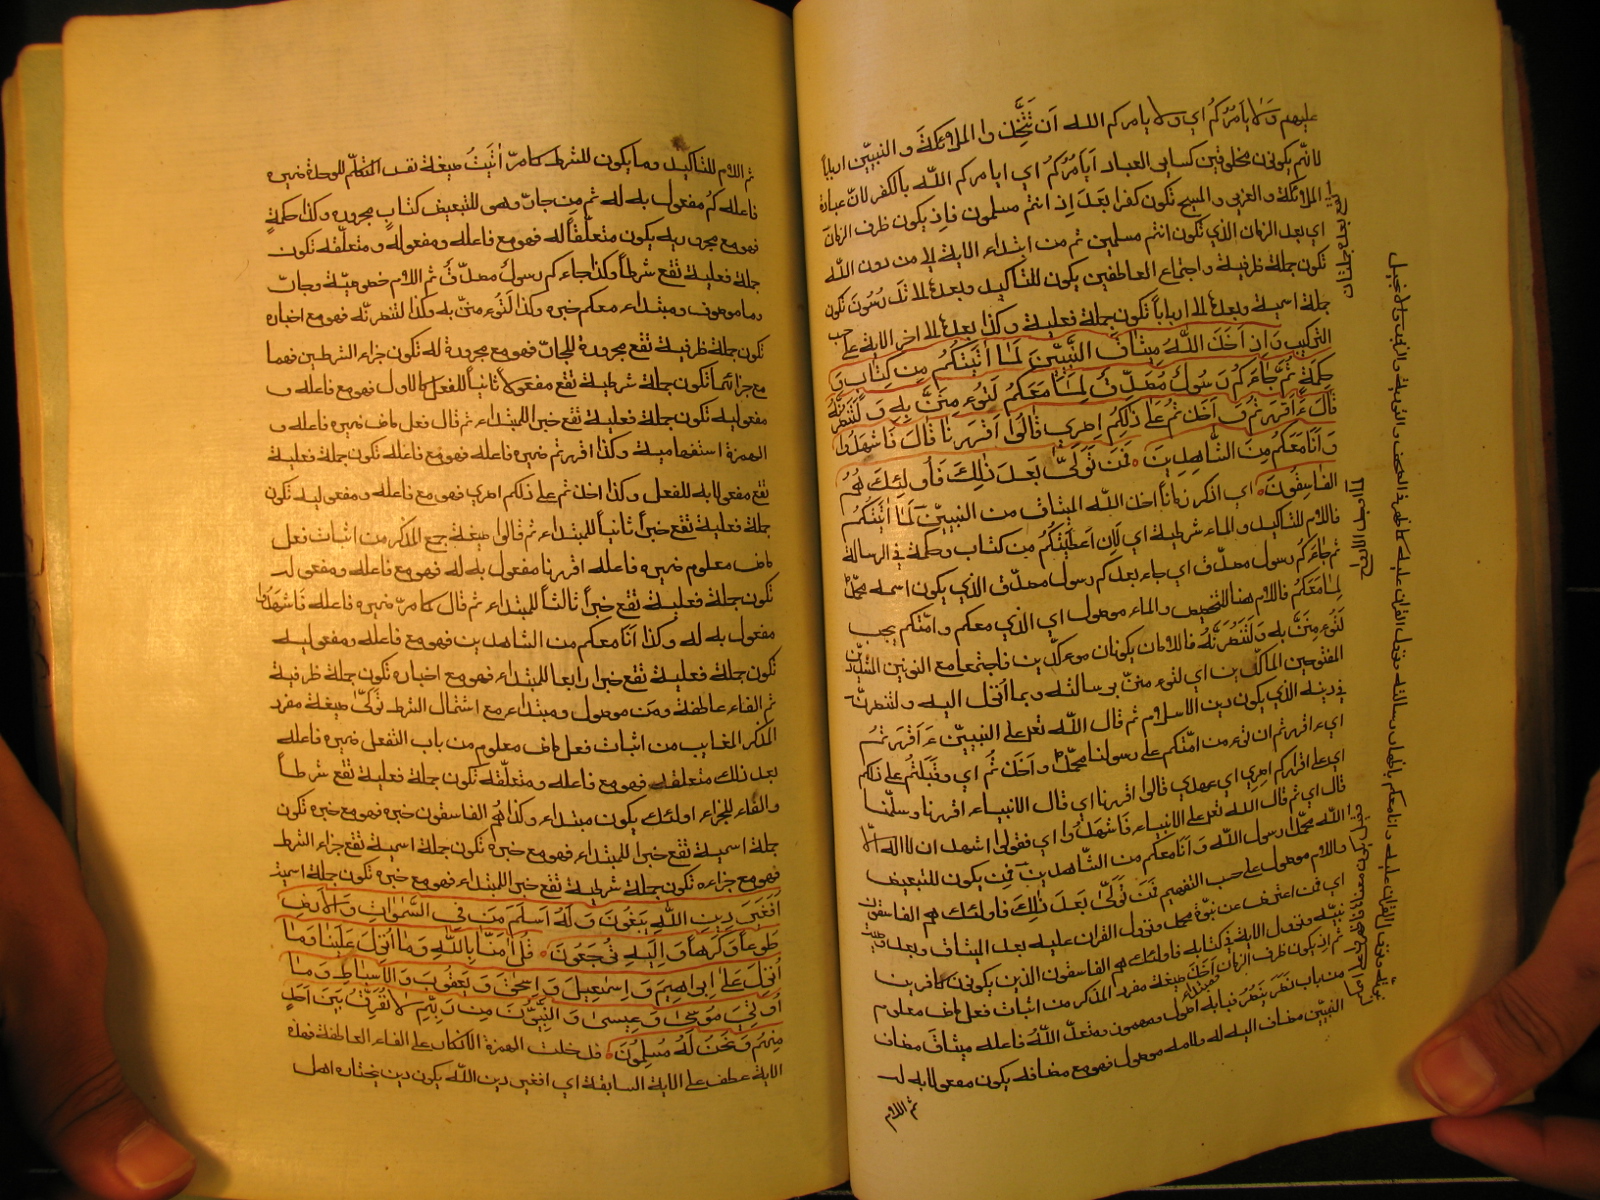 عليهم وَلا يَأمُرَكُم اي ولا يامركم الله اَن تَتَّخِذوا الملائِكةَ والنبيّين اربابًا
لانّهم يكونون مخلوقين كسائر العباد اَيَأمُرُكُم اي ايامركم اللّه بالكفر لانّ عبادة
الملائكة والعزير والمسيح تكون كفرا بَعدَ اِذ انتم مسلمون فاِذ يكون ظرف الزمان
اي بعد الزمان الذي تكون انتم مسلمين ثم من ابتداء الاية الا من دون اللّه
تكون جملة ظرفية واجتماع العاطفين يكون للتاكيد وبعده الا تدرسُون تكون
جملة اسمية وبعده الا اربابًا تكون جملة فعلية وكذا بعده الا اخر الاية على حسب
التركيب وَاِذ اَخَذَ اللّهُ مِيثاقَ النَّبِيّينَ لَما اٰتَيتُكُم مِن كِتابٍ وَ
حِكمَةٍ ثُمَّ جاءَكُم رَسُولٌ مُصَدِّقٌ لِمٰا مَعَكُم لَتُؤمِنُنَّ بِهِ وَلَتَنصُرُنَّهُ
قالَ ءَاَقرَرتُم وَاَخَذتُم عَلىٰ ذٰلِكُم اِصرِي قالُوا اَقرَرنا قالَ فَاشهَدُوا
وَاَنَا مَعَكُم مِنَ الشّاهِدِينَ فَمَن تَوَلّىٰ بَعدَ ذٰلِكَ فَاُولٰئِكَ هُمُ
الفاسِقُونَ اي اذكر زمانًا اخذ اللّه الميثاق من النبيّين لَما اٰتَيتُكُم
فاللام للتاكيد والماء شرطية اي لَاِن اَعطَيتُكُم مِن كتاب وحكمة في الرسالة
ثم جاءَكُم رسول مصدّق اي جاء بعدكم رسول مصدّق الذي يكون اسمه محمّد
لِما مَعَكُم فاللام هنا للتخصيص والماء موصول اي الذي معكم وامّتكم يجب
لَتُؤمِنُنَّ بِهِ وَلَتَنصُرُنَّهُ فاللامان يكونان موكّدين فاجتمعا مع النونين المثقلين
المفتوحين الماكّدين اي لتؤمننّ برسالته وبما اُنزل اليه ولتنصرنّه
في دينه الذي يكون دين الاسلام ثم قال اللّه تعلى على النبيّين ءَاَقرَرتُم
اي اقررتم ان تؤمن امّتكم على رسولنا محمّد وَاَخَذتُم اي وقَبَلتُم على ذلكم
اي على اقراركم اِصرِي اي عهدي قالوا اقررنا اي قال الانبياء اقررنا وسلّمنا
قال اي ثم قال اللّه تعلى على الانبياء فَاشهَدُوا اي فقولوا اشهد ان لا اله الّا
اللّه محمّدا رسول اللّه وَاَنا مَعَكُم مِنَ الشّاهِدِينَ فمِن يكون للتبعيض
واللام موصول على حسب التفهيم فَمَن تَوَلّىٰ بَعدَ ذٰلِكَ فاولئك هم الفاسقون
اي فمن اعترف عن نبوّة محمّد ونزول القران عليه بعد الميثاق وبعد
نبيّه ونزول الاية في كتابه فاولئك هم الفاسقون الذين يكونون كافرين
ثم اذ يكون ظرف الزمان اَخَذَ صيغة مفرد المذكر من اثبات فعل ماض معلوم
من باب نَصَرَ يَنصُرُ اللّهُ فاعله ميثاقَ مضاف
النبيّين مضاف اليه له ولامه موصول فهو مع مضافه يكون مفعولا به له
ثم اللام
ثم اللام للتاكيد وما يكون للشرط كما مرّ اٰتَيتُ صيغة نفس المتكلّم للوحدة ضميره
فاعله كُم مفعول به له ثم مِن جارّ وهي للتبعيض كتابٍ مجروره وكذا حكمةٍ
فهو مع مجروريه يكون متعلّقًا له فهو مع فاعله ومفعوله ومتعلّقه تكون
جملة فعلية تقع شرطًا وكذا جاءكم رسولٌ مصدّقٌ ثم اللام خصوصيّة وجارّ
وما موصوف ومبتداء معكم خبره وكذا لَتُؤمننّ به وكذا لتنصرنّه فهو مع اخباره
تكون جملة ظرفية تقع مجرورة للجارّ فهو مع مجرورة له تكون جزاء الشرطين فهما
مع جزائهما تكون جملة شرطية تقع مفعولًا ثانيًا للفعل الاول فهو مع فاعله و
مفعوليه تكون جملة فعلية تقع خبر اللمبتداء ثم قال فعل ماض ضميره فاعله و
الهمزة استفهامية وكذا اقررتم ضميره فاعله فهو مع فاعله تكون جملة فعلية
تقع مفعولا به للفعل وكذا اخذتم على ذلكم اصري فهو مع فاعله ومفعوليه تكون
جملة فعلية تقع خبرًا ثانيًا للمبتداء ثم قالوا صيغة جمع المذكر من اثبات فعل
ماض معلوم ضميره فاعله اقررنا مفعول به له فهو مع فاعله ومفعوله
تكون جملة فعلية تقع خبرًا ثالثًا للمبتداء ثم قال كما مرّ ضميره فاعله فاشهدوا
مفعول به له وكذا اَنَا معكم من الشاهدين فهو مع فاعله ومفعوليه
تكون جملة فعلية تقع خبرا رابعا للمبتداء فهو مع اخباره تكون جملة ظرفية
ثم الفاء عاطفة ومَن موصول ومبتداء مع اشتمال الشرط تولّىٰ صيغة مفرد
المذكر الغايب من اثبات فعل ماض معلوم من باب التفعل ضميره فاعله
بعد ذلك متعلقه فهو مع فاعله ومتعلّقه تكون جملة فعلية تقع شرطًا
والفاء للجزاء اولئك يكون مبتداء وكذا هُم الفاسقون خبره فهو مع خبره تكون
جملة اسمية تقع خبرا للمبتداء فهو مع خبره تكون جملة اسمية تقع جزاء الشرط
فهو مع جزاءه تكون جملة شرطية تقع خبر اللمبتداء فهو مع خبره تكون جملة اسمية
اَفَغَيرَ دِينِ اللّهِ يَبغُونَ وَلَهُ اَسلَمَ مَن فِي السَّمٰواتِ وَالاَرضِ
طَوعاً وَكَرهاً وَاِلَيهِ تُرجَعُونَ قُل اٰمَنّا بِاللّهِ وَما اُنزِلَ عَلَينا وَمٰا
اُنزِلَ عَلىٰ اِبراهِيمَ وَاِسمٰعِيلَ وَاِسحٰقَ وَيَعقُوبَ وَالاَسباطِ وَمٰا
اُوتِيَ مُوسىٰ وَعِيسىٰ وَالنَّبِيُّونَ مِن رَبِّهِم لا نُفَرِّقُ بَينَ اَحَدٍ
مِنهُم وَنَحنُ لَهُ مُسلِمُونَ قد دخلت الهمزة الانكار على الفاء العاطفة فهذه
الاية عطف على الاية السابقة اي افغير دين اللّه يكون دين يختاره اهل